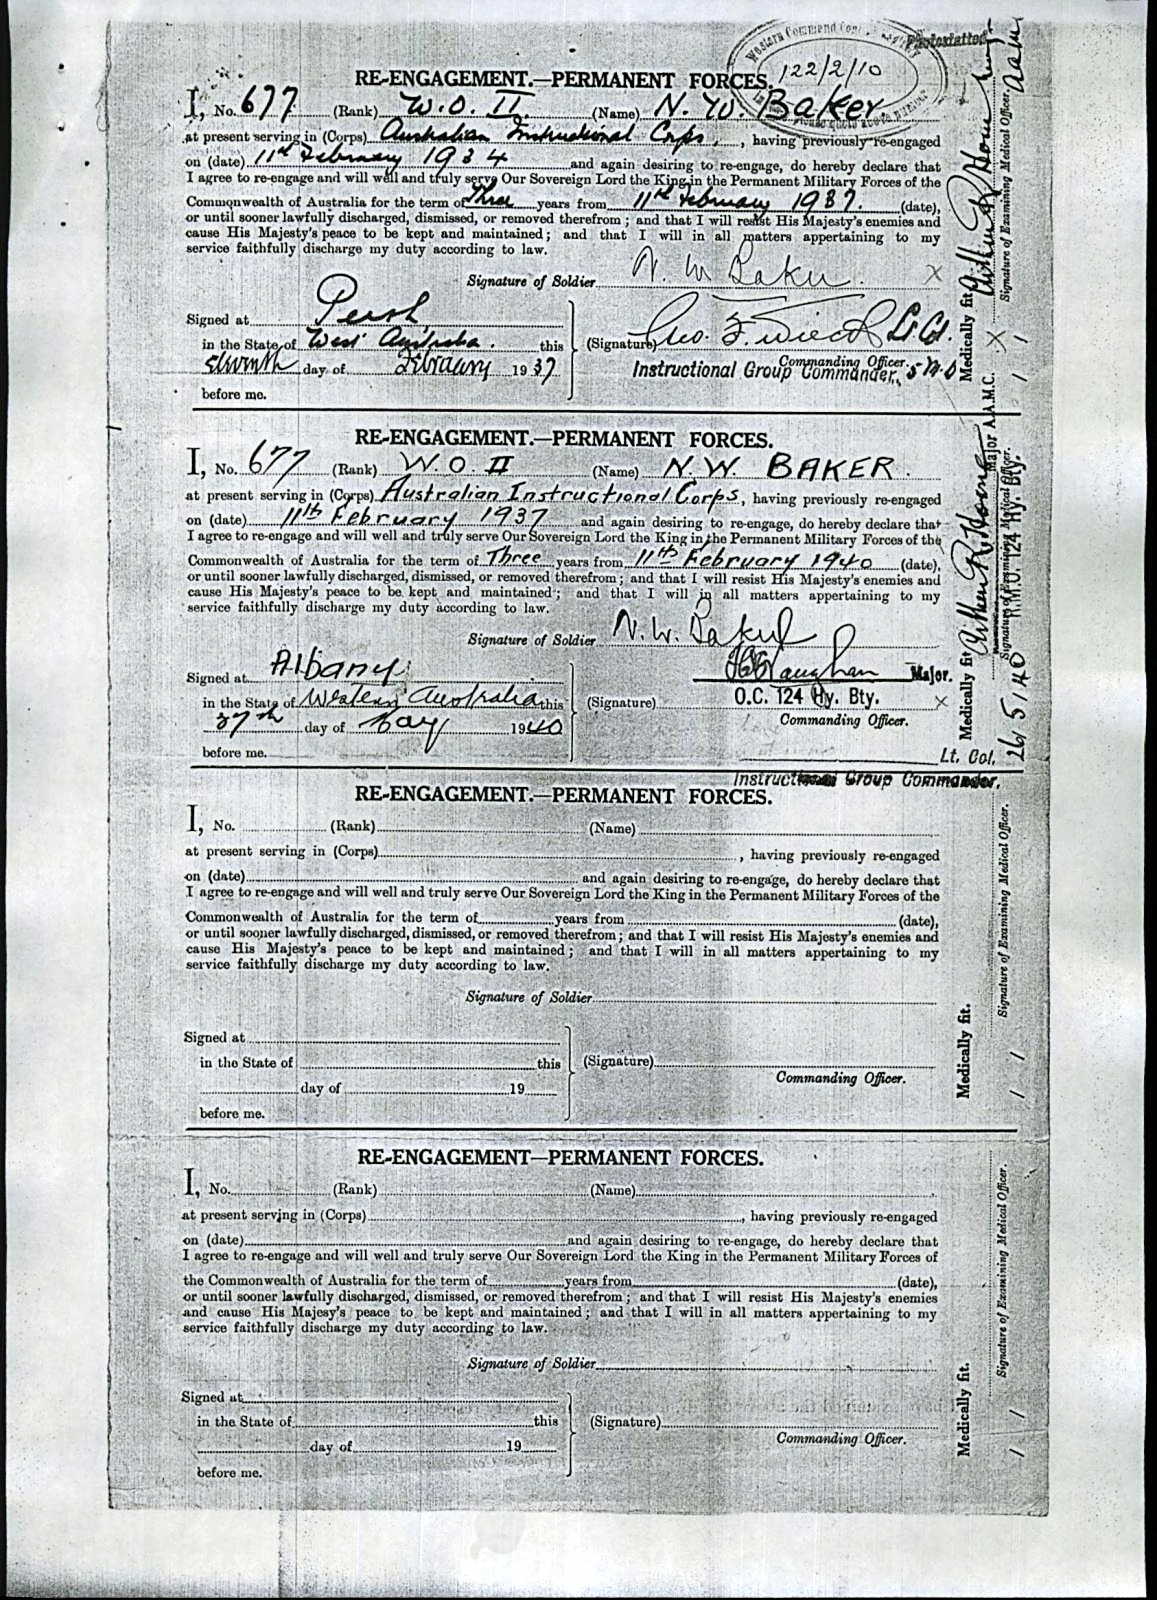 Western Command
122/2/10
Photostatted
RE-ENGAGEMENT.—PERMANENT FORCES.
I, No. 677 (Rank) W.O. II (Name) N. W. Baker
at present serving in (Corps) Australian Instructional Corps, , having previously re-engaged
on (date) 11th February 1934 and again desiring to re-engage, do hereby declare that
I agree to re-engage and will well and truly serve Our Sovereign Lord the King in the Permanent Military Forces of the
Commonwealth of Australia for the term of Three years from 11th February 1937. (date),
or until sooner lawfully discharged, dismissed, or removed therefrom; and that I will resist His Majesty's enemies and
cause His Majesty's peace to be kept and maintained; and that I will in all matters appertaining to my
service faithfully discharge my duty according to law.
Signature of Soldier N. W. Baker. X
Signed at Perth
in the State of West Australia. this (Signature) Geo. F. Lt Col.
Eleventh day of February 1937 Commanding Officer.
Instructional Group Commander, 5 M.D.
before me.
Medically fit
Signature of Examining Medical Officer.
X Major A.A.M.C.
RE-ENGAGEMENT.—PERMANENT FORCES.
I, No. 677 (Rank) W.O. II (Name) N.W. BAKER.
at present serving in (Corps) Australian Instructional Corps, having previously re-engaged
on (date) 11th February 1937 and again desiring to re-engage, do hereby declare that
I agree to re-engage and will well and truly serve Our Sovereign Lord the King in the Permanent Military Forces of the
Commonwealth of Australia for the term of Three years from 11th February 1940 (date),
or until sooner lawfully discharged, dismissed, or removed therefrom; and that I will resist His Majesty's enemies and
cause His Majesty's peace to be kept and maintained; and that I will in all matters appertaining to my
service faithfully discharge my duty according to law.
Signature of Soldier N. W. Baker
Signed at Albany Vaughan Major.
in the State of Western Australia this (Signature) O.C. 124 Hy. Bty. X
27th day of May 1940 Commanding Officer.
before me. Lt. Col.
Instructional Group Commander.
Medically fit
Signature of Examining Medical Officer.
R.M.O. 124 Hy. Bty.
26/5/40
RE-ENGAGEMENT.—PERMANENT FORCES.
I, No. (Rank) (Name)
at present serving in (Corps) , having previously re-engaged
on (date) and again desiring to re-engage, do hereby declare that
I agree to re-engage and will well and truly serve Our Sovereign Lord the King in the Permanent Military Forces of the
Commonwealth of Australia for the term of years from (date),
or until sooner lawfully discharged, dismissed, or removed therefrom; and that I will resist His Majesty's enemies and
cause His Majesty's peace to be kept and maintained; and that I will in all matters appertaining to my
service faithfully discharge my duty according to law.
Signature of Soldier
Signed at
in the State of this (Signature)
day of 19 Commanding Officer.
before me.
Medically fit.
Signature of Examining Medical Officer.
/ /
RE-ENGAGEMENT—PERMANENT FORCES.
I, No. (Rank) (Name)
at present serving in (Corps) , having previously re-engaged
on (date) and again desiring to re-engage, do hereby declare that
I agree to re-engage and will well and truly serve Our Sovereign Lord the King in the Permanent Military Forces of
the Commonwealth of Australia for the term of years from (date),
or until sooner lawfully discharged, dismissed, or removed therefrom; and that I will resist His Majesty's enemies
and cause His Majesy's peace to be kept and maintained; and that I will in all matters appertaining to my
service faithfully discharge my duty according to law.
Signature of Soldier
Signed at
in the State of this (Signature)
day of 19 Commanding Officer.
before me.
Medically fit.
Signature of Examining Medical Officer.
/ /